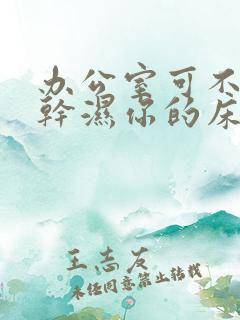 办公室可不
幹濕你的床
王志友
未经同意禁止转载